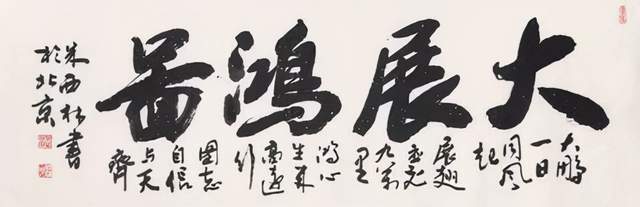 大展鸿图
大鹏
一日
同风
起
展翅
直飞
九万
里
鸿心
生来
高远
行
图志
自信
与天
齊
朱西林書
於北京